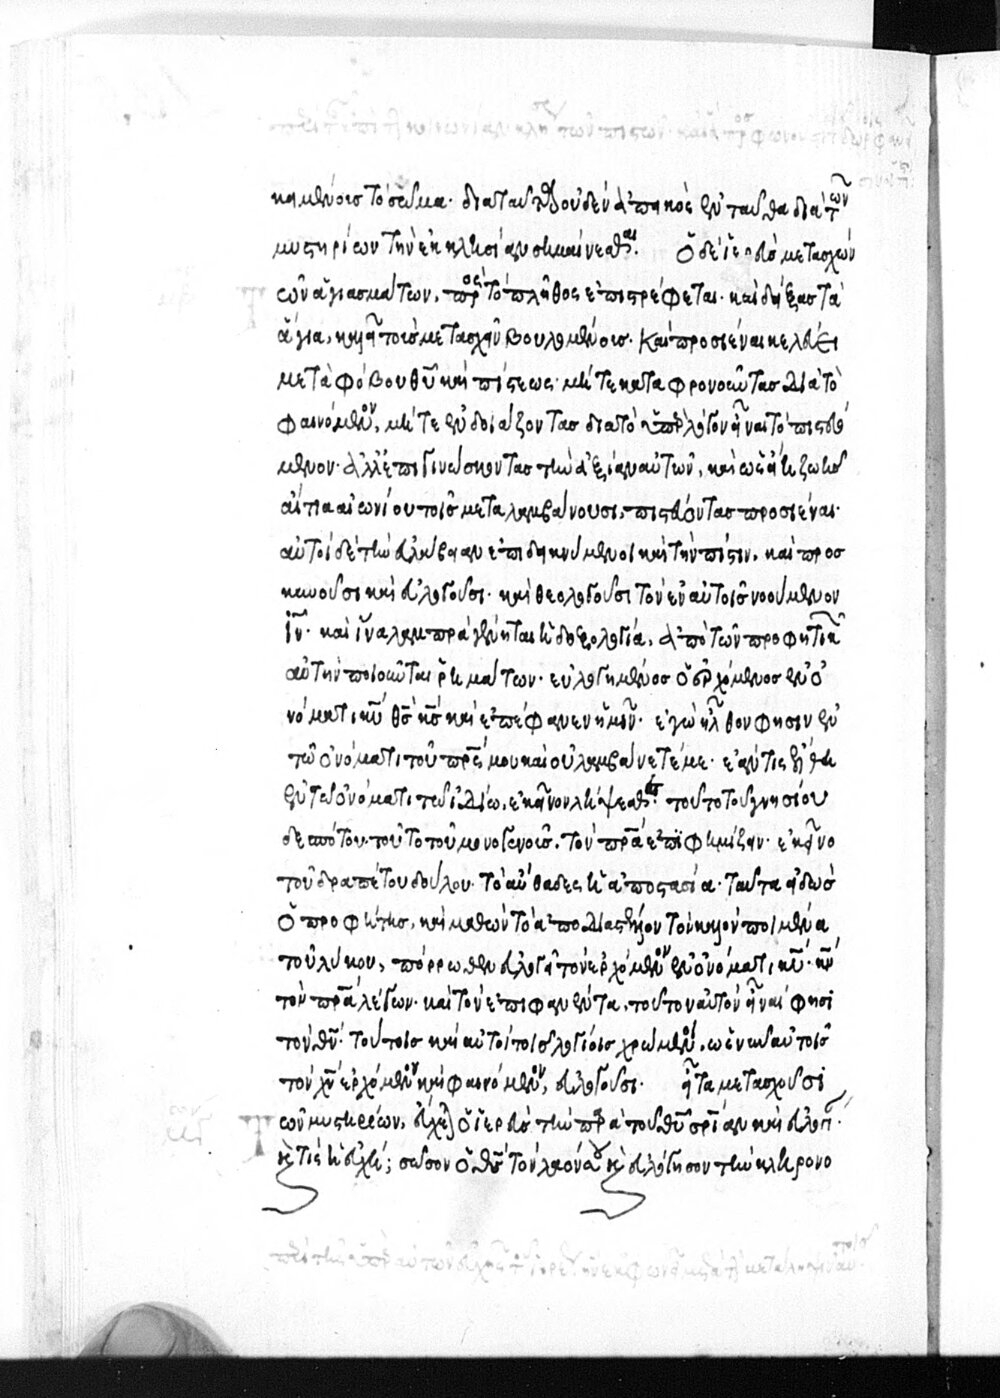 κημένοις τὸ σῶμα· διαταῦτα οὐδὲν ἀπεικὸς ἐνταῦθα διὰ τῶν
μυστηρίων τὴν ἐκκλησίαν σημαίνεσθαι. Ὁ δὲ ἱερεὺς μετασχὼν
τῶν ἁγιασμάτων, πρὸς τὸ πλῆθος ἐπιστρέφεται· καὶ δείξας τὰ
ἅγια, καλεῖ τοὺς μετασχεῖν βουλομένους. Καὶ προσιέναι κελεύει
μετὰ φόβου θεοῦ καὶ πίστεως· μήτε καταφρονοῦντας διὰ τὸ
φαινόμενον, μήτε ἐνδοιάζοντας διὰ τὸ ὑπὲρ λόγον εἶναι τὸ πιστευό
μενον· ἀλλ' ἐπιγινώσκοντας τὴν ἀξίαν αὐτῶν, καὶ ὡς ἔστι ζωῆς
αἴτια αἰωνίου τοῖς μεταλαμβάνουσι, πιστεύοντας προσιέναι·
αὐτοὶ δὲ τὴν εὐλάβειαν ἐπιδεικνύμενοι καὶ τὴν πίστιν, καὶ προσ
κυνοῦσι καὶ εὐλογοῦσι· καὶ θεολογοῦσι τὸν ἐν αὐτοῖς νοούμενον
ἰν· καὶ ἵνα λαμπρὰ γένηται ἡ δοξολογία, ἀπὸ τῶν προφητικῶν
αὐτὴν ποιοῦνται ῥημάτων· εὐλογημένος ὁ ἐρχόμενος ἐν ὀ
νόματι κυ θς κς καὶ ἐπέφανεν ἡμῖν· ἐγὼ ἦλθον φησὶν ἐν
τῶ ὀνόματι τοῦ πρς μου καὶ οὐ λαμβάνετέ με· ἐάν τις ἔλθη
ἐν τῶ ὀνόματι τῶ ἰδίω, ἐκεῖνον λήψεσθε· τοῦτο τοῦ γνησίου
δεσπότου· τοῦτο τοῦ μονογενοῦς. τὸν πρα ἐπιφημίζειν· ἐκεῖνο
τοῦ δραπέτου δούλου· τὸ αὔθαδες ἡ ἀποστασία· ταῦτα εἰδὼς
ὁ προφήτης, καὶ μαθὼν τὸ ἀποδιαστέλλον τὸν καλὸν ποιμένα
τοῦ λύκου, πόρρωθεν εὐλογεῖ τὸν ἐρχόμενον ἐν ὀνόματι κυ· κν
τὸν πρα λέγων· καὶ τὸν ἐπιφανέντα, τοῦτον αὐτὸν εἶναί φησι
τὸν θν· τούτοις καὶ αὐτοὶ τοῖς λογίοις χρώμενοι, ὡς ἐν αὐτοῖς
τὸν χν ἐρχόμενον καὶ φαινόμενον, εὐλογοῦσι. εἶτα μετασχοῦσι
τῶν μυστηρίων, εὔχεται ὁ ἱερεὺς τὴν παρὰ τοῦ θυ σριαν καὶ εὐλογίαν·
κ τίς ἡ εὐχή; σῶσον ὁ θς τὸν λαόν σου κ εὐλόγησον τὴν κληρονο